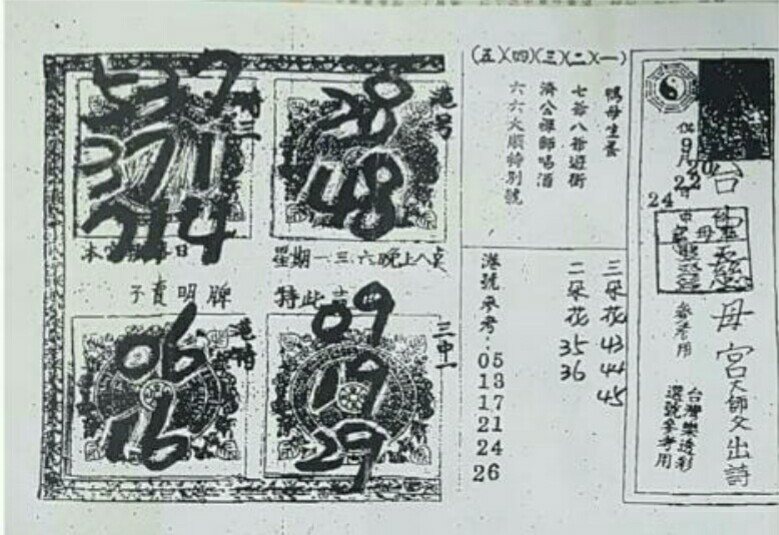 台
慈母宮
天師父出詩
台灣樂透彩
選號參考用
參考用
24
22
(五)(四)(三)(二)(一)
鴨母生蛋
七爺八爺遊街
濟公禪師喝酒
六六大順特別號
三朵花 43 44 45
二朵花 35 36
港號參考：05 13 17 21 24 26
港号
28
48
特三
537
371
714
星期一三六晚上八
特此
子賣明牌
三中一
09
19
29
港特
06
16